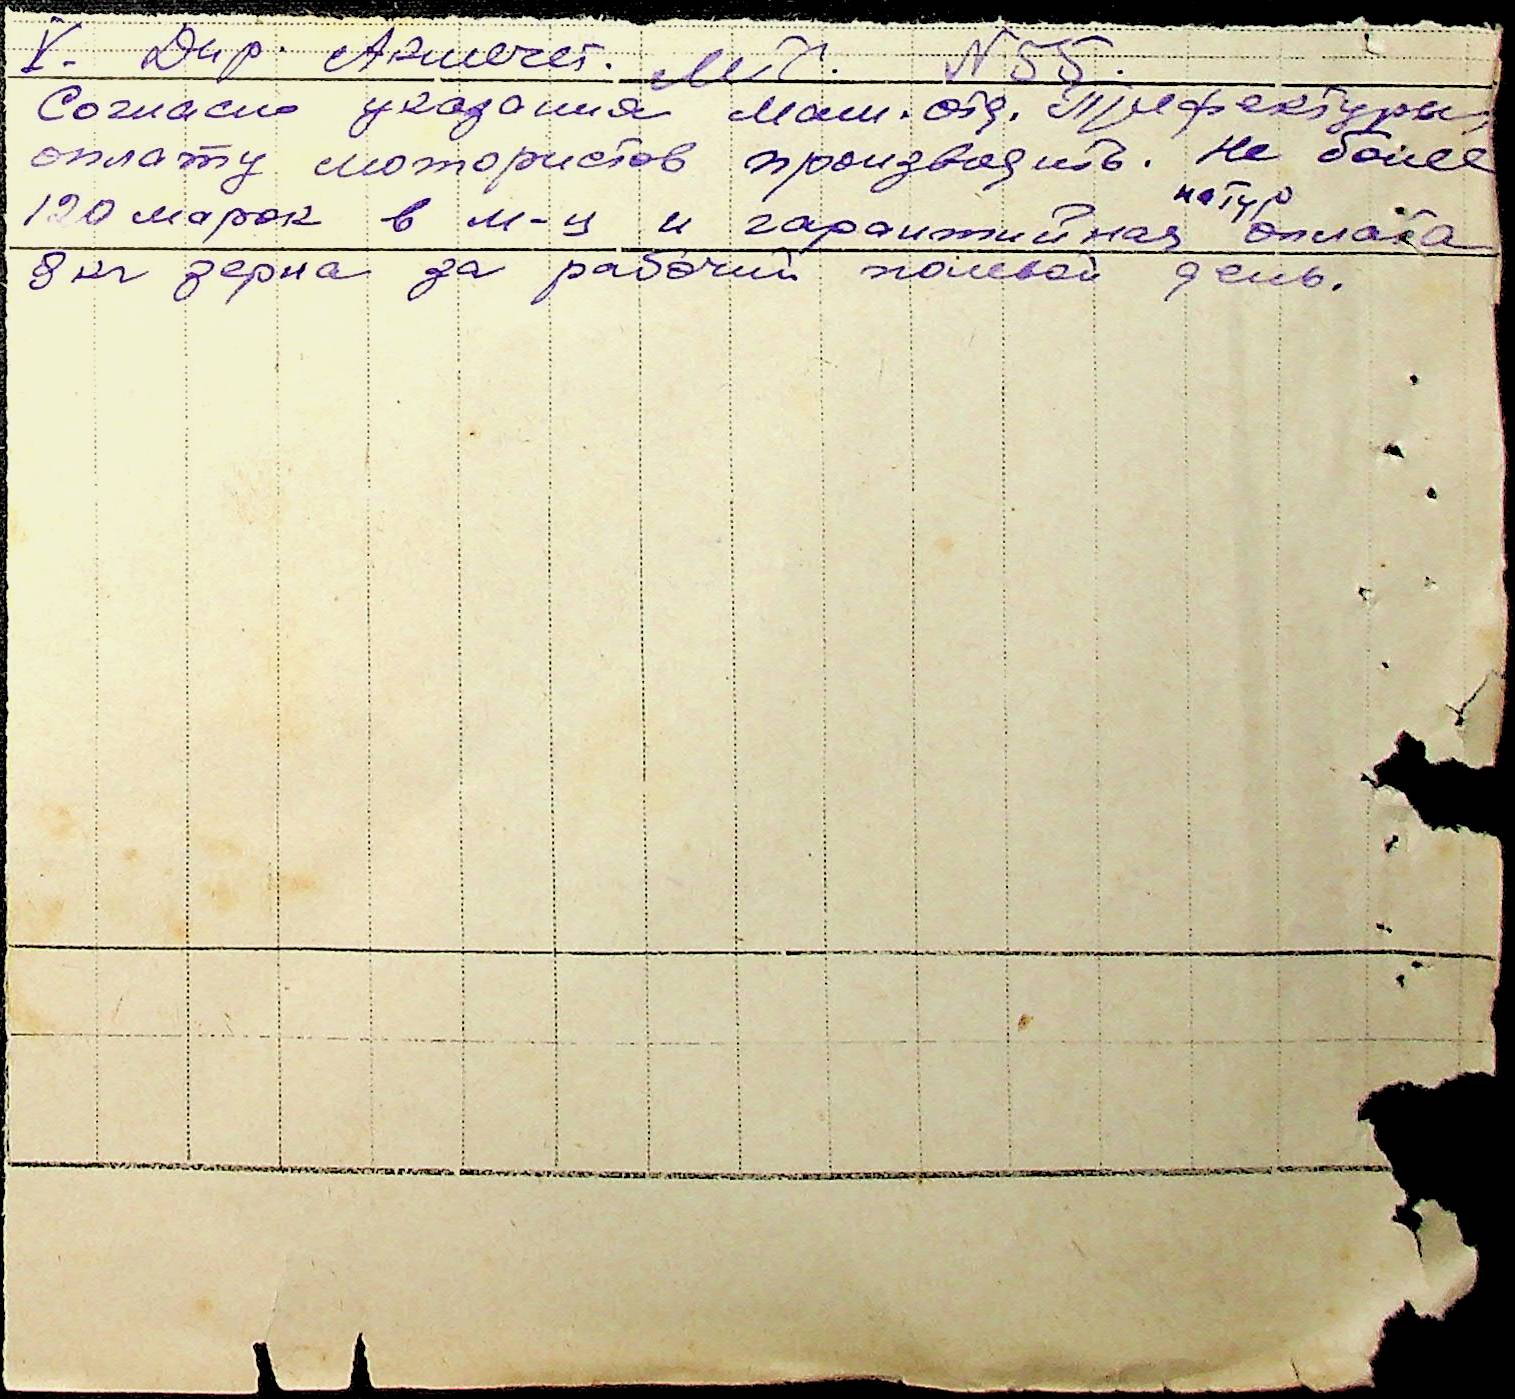 V. Дир. Акмечет. М.Т. N 55.
Согласно указания маш. отд. Префектуры,
оплату мотористов производить. Не более
120 марок в м-ц и гарантийная натур оплата
8 кг зерна за рабочий полевой день.